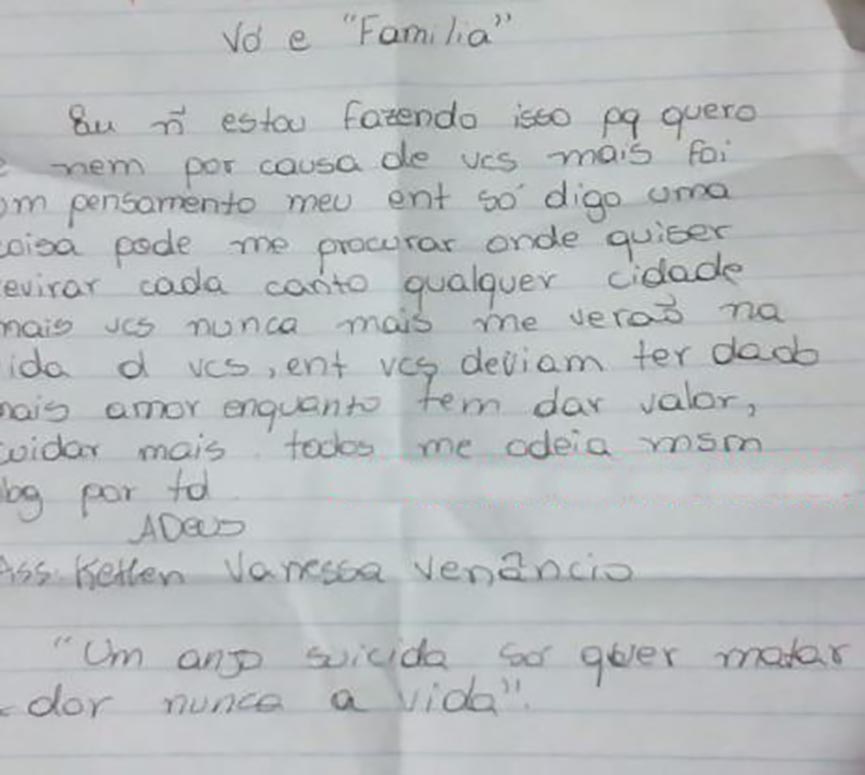 Vó e "Familia"
Eu ñ estou fazendo isso pq quero
e nem por causa de vcs mais foi
om pensamento meu ent só digo uma
coisa pode me procurar onde quiser
evirar cada canto qualquer cidade
mais vcs nunca mais me verão na
ida d vcs, ent vcs deviam ter dado
mais amor enquanto tem dar valor,
cuidar mais todos me odeia msm
bg por td
ADeus
Ass. Ketlen Vanessa Venâncio
"Um anjo suicida só quer matar
dor nunca a vida".